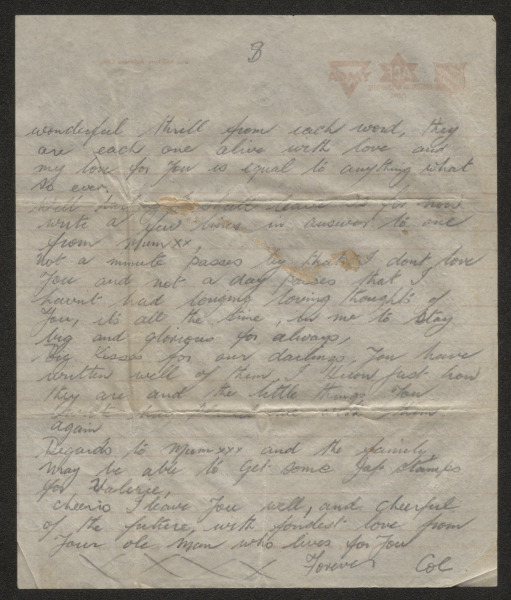 8
ARMY
wonderful thrill from each word, they
are each one alive with love and
my love for You is equal to anything what
so ever,
Well shall leave for now
write a few lines in answer to one
from Mum xx,
Not a minute passes by that I dont love
You and not a day passes that I
havent had longing loving thoughts of
You, it's all the time, in me to stay
big and glorious for always,
Big kisses for our darlings, You have
written well of them, I know just how
they are and the little things You
them
again
Regards to Mum xxx and the family,
may be able to get some Jap stamps
for Valerie,
Cheerio I leave You well, and cheerful
of the future, with fondest love from
Your ole man who lives for You
Forever Col
x x x x x x